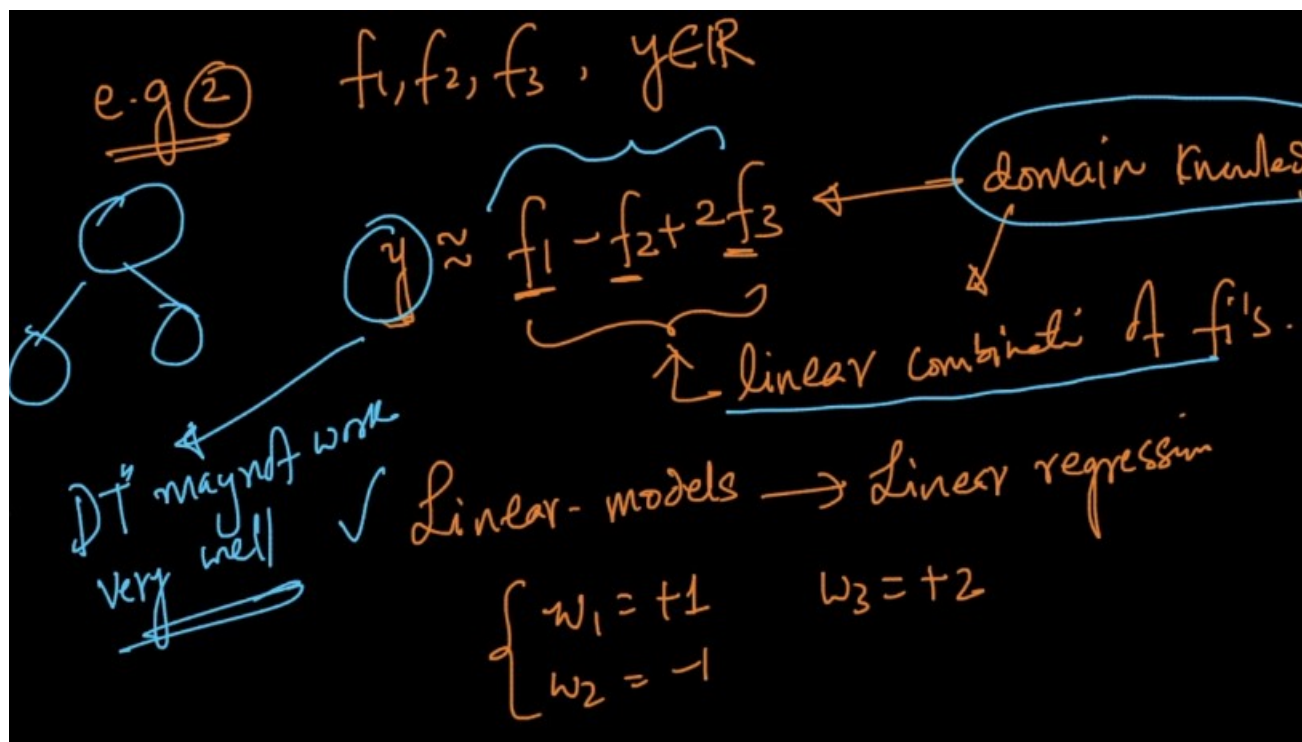 e.g ② f1, f2, f3, y∈ℝ
y ≈ f1 - f2 + 2f3 ← domain Knowled
linear combinati of fi's.
DT" may not work
very well
✓ Linear-models → Linear regression
w1 = +1 w3 = +2
w2 = -1